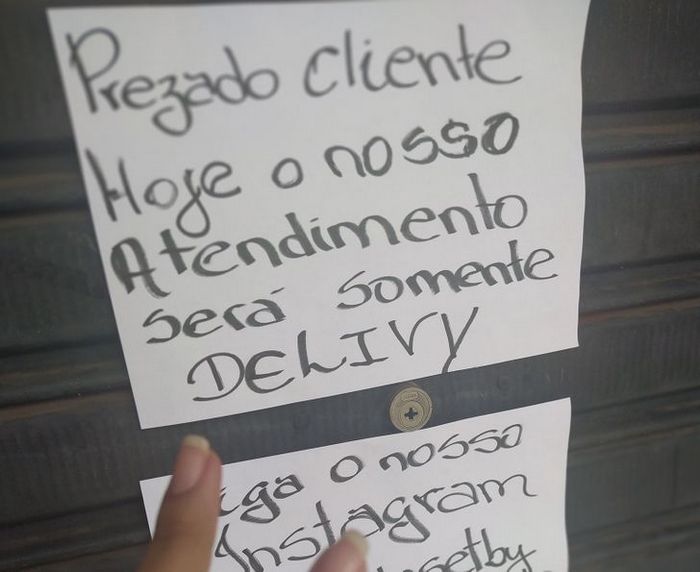 Prezado cliente
Hoje o nosso
Atendimento
será somente
DELIVY
o nosso
Instagram